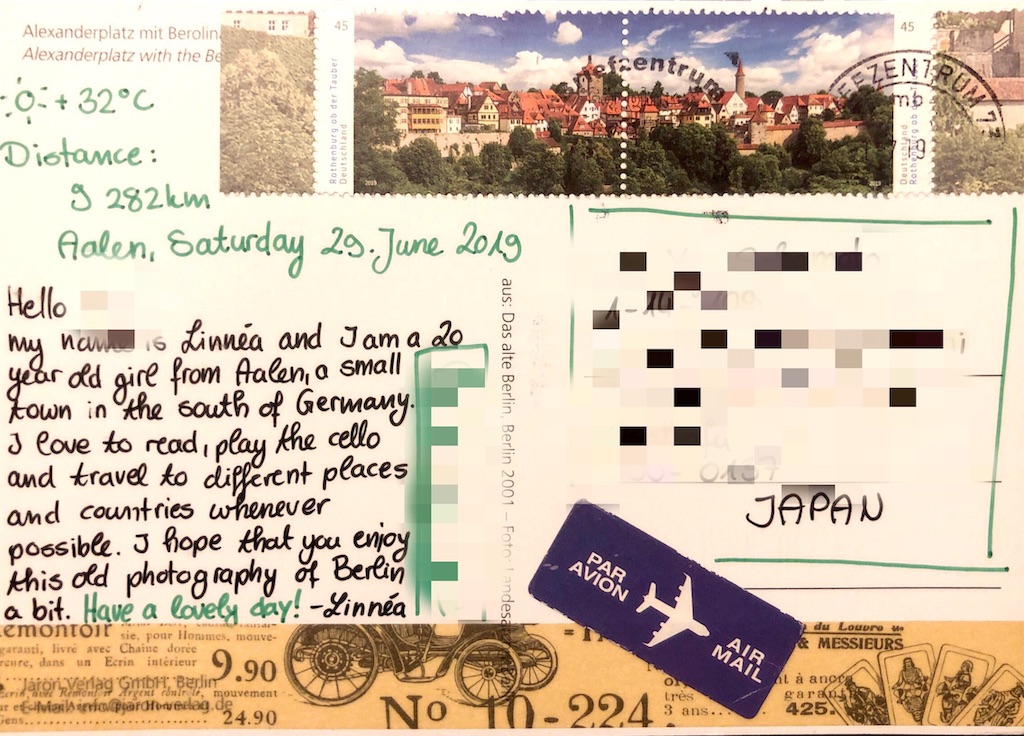 Alexanderplatz mit Berolin
Alexanderplatz with the Be
45
Rothenburg ob der Tauber
Deutschland
2019
45
Rothenburg ob
Deutschland
2019
Briefzentrum
EZENTRUM
mb
+ 32°C
Distance:
9 282km
Aalen, Saturday 29. June 2019
Hello
my name is Linnéa and I am a 20
year old girl from Aalen, a small
town in the south of Germany.
I love to read, play the cello
and travel to different places
and countries whenever
possible. I hope that you enjoy
this old photography of Berlin
a bit. Have a lovely day! -Linnéa
aus: Das alte Berlin, Berlin 2001 – Foto: Landesa
JAPAN
PAR
AVION
AIR
MAIL
emontoir
sie, pour Hommes, mouve-
garanti, livré avec Chaine dorée
rcure, dans un Ecrin intérieur
9.90
Jaron Verlag GmbH, Berlin
mouvement
24.90
No 10-224.
du Louvre
& MESSIEURS
très
3 ans.
garant
425.